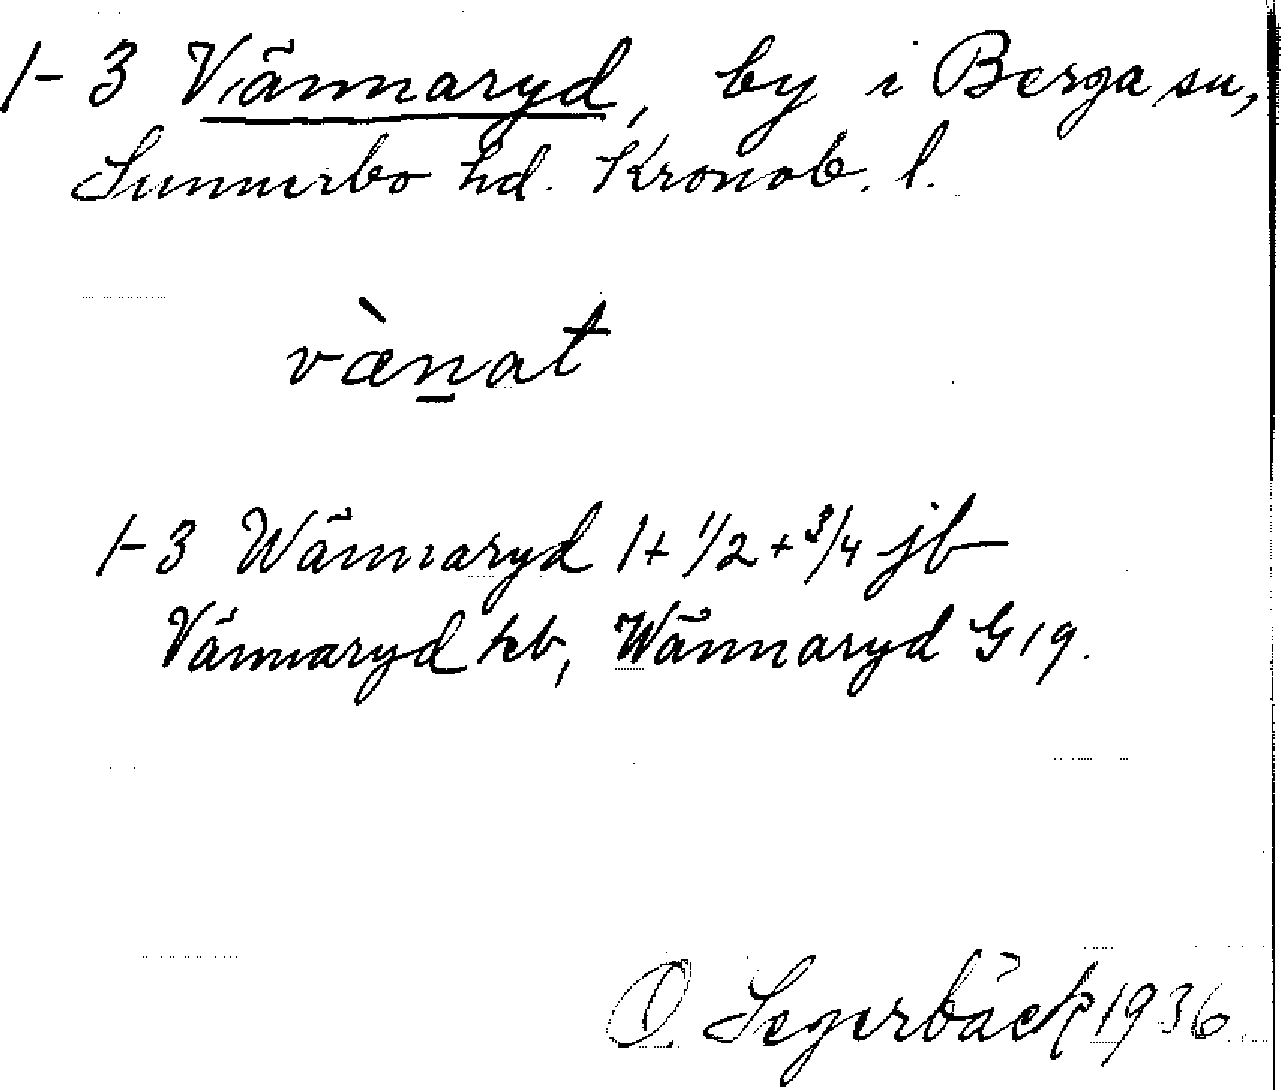 1-3 Vännaryd, by i Berga sn,
Sunnerbo hd. Kronob. l.
vænat
1-3 Wännaryd 1+1/2+3/4 jb
Vännaryd kb, Wännaryd G 19.
O Segerbäck 1936